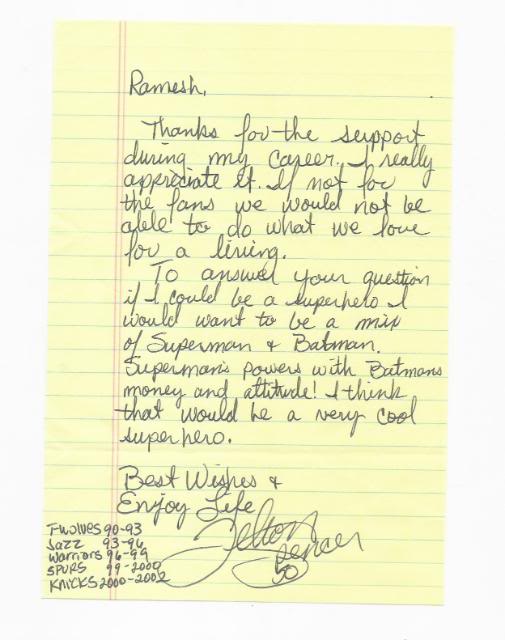 Ramesh,
Thanks for the support
during my career. I really
appreciate it. If not for
the fans we would not be
able to do what we love
for a living.
To answer your question
if I could be a superhero I
would want to be a mix
of Superman & Batman.
Superman's powers with Batmans
money and attitude! I think
that would be a very cool
superhero.
Best Wishes &
Enjoy Life
Felton
Spencer
50
T-wolves 90-93
Jazz 93-96
Warriors 96-99
SPURS 99-2000
KNICKS 2000-2002